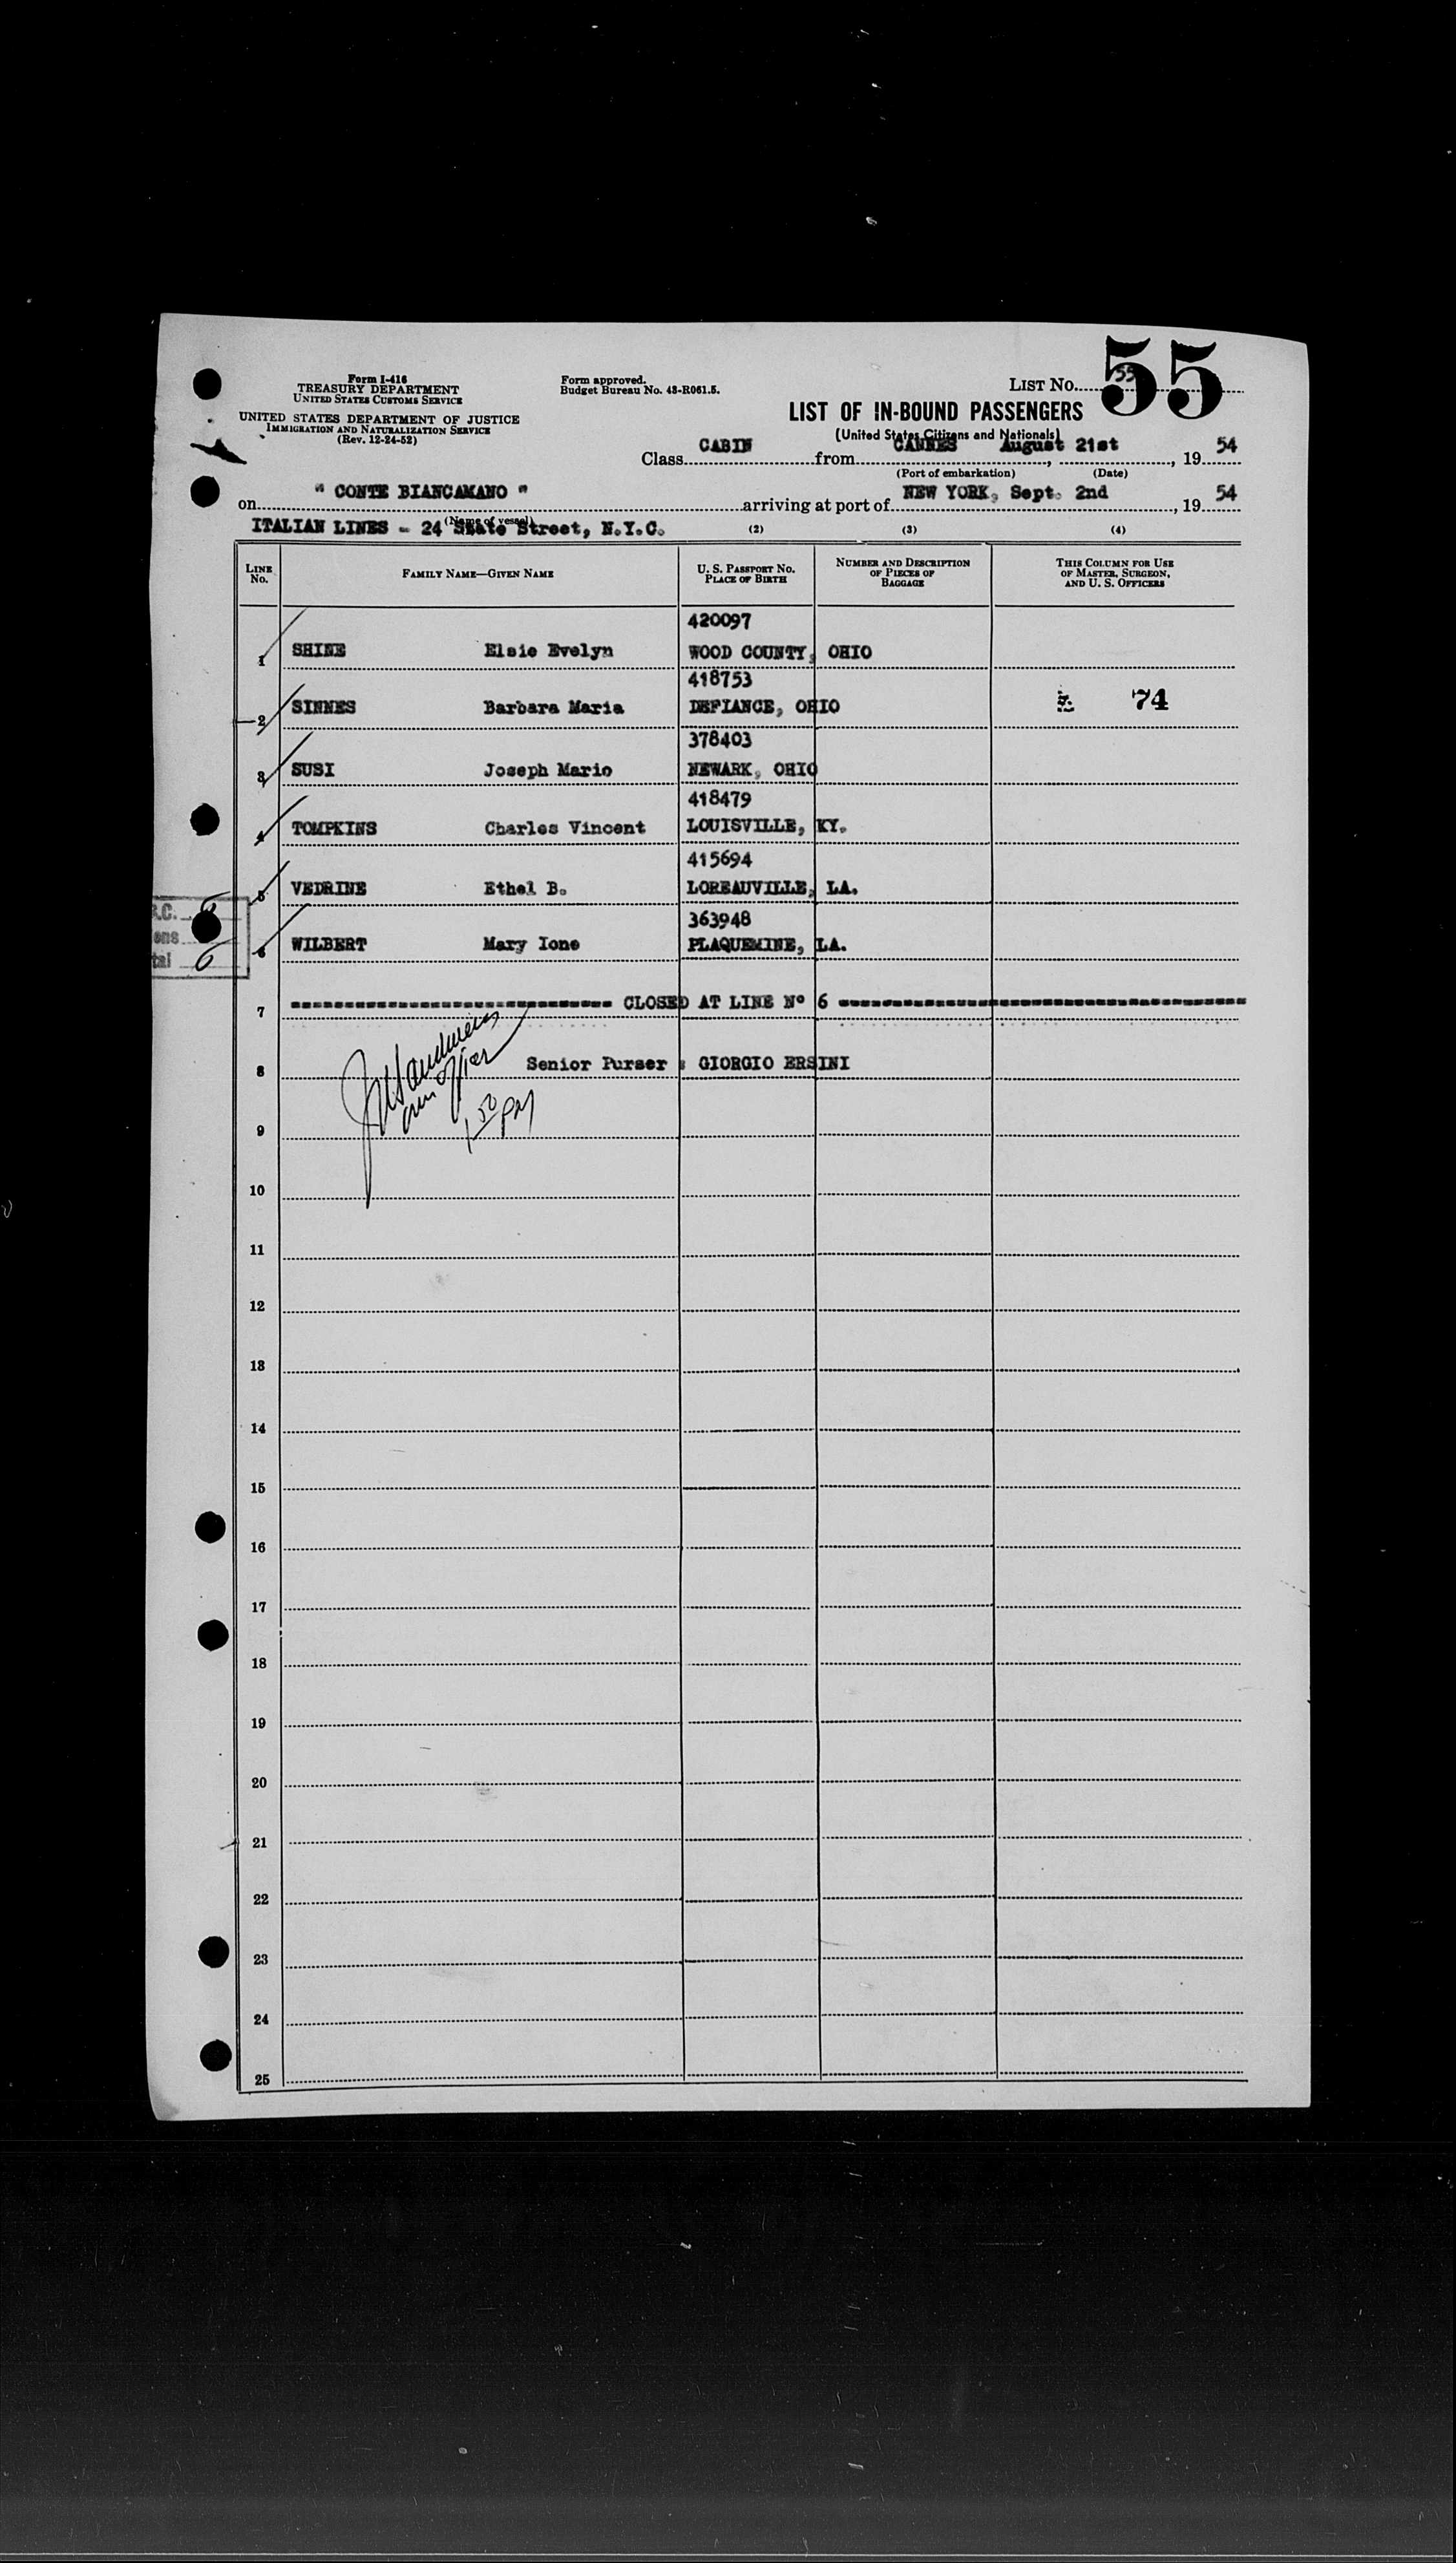 55
Form I-416
TREASURY DEPARTMENT
UNITED STATES CUSTOMS SERVICE
UNITED STATES DEPARTMENT OF JUSTICE
IMMIGRATION AND NATURALIZATION SERVICE
(Rev. 12-24-52)
Form approved.
Budget Bureau No. 43-R061.5.
LIST No. 55
LIST OF IN-BOUND PASSENGERS
(United States Citizens and Nationals)
Class CABIN from CANNES August 21st, 19 54
(Port of embarkation) (Date)
on " CONTE BIANCAMANO " arriving at port of NEW YORK, Sept. 2nd, 19 54
(Name of vessel)
ITALIAN LINES - 24 State Street, N.Y.C.
(2) (3) (4)
LINE No. FAMILY NAME—GIVEN NAME U. S. PASSPORT No. PLACE OF BIRTH NUMBER AND DESCRIPTION OF PIECES OF BAGGAGE THIS COLUMN FOR USE OF MASTER, SURGEON, AND U. S. OFFICERS
420097
1 SHINE Elsie Evelyn WOOD COUNTY, OHIO
418753
2 SINNES Barbara Maria DEFIANCE, OHIO 74
378403
3 SUSI Joseph Mario NEWARK, OHIO
418479
4 TOMPKINS Charles Vincent LOUISVILLE, KY.
415694
5 VEDRINE Ethel B. LOREAUVILLE, LA.
363948
6 WILBERT Mary Ione PLAQUEMINE, LA.
6
7 CLOSED AT LINE Nº 6
8 Senior Purser : GIORGIO ERSINI
1 50 PM
9
10
11
12
13
14
15
16
17
18
19
20
21
22
23
24
25